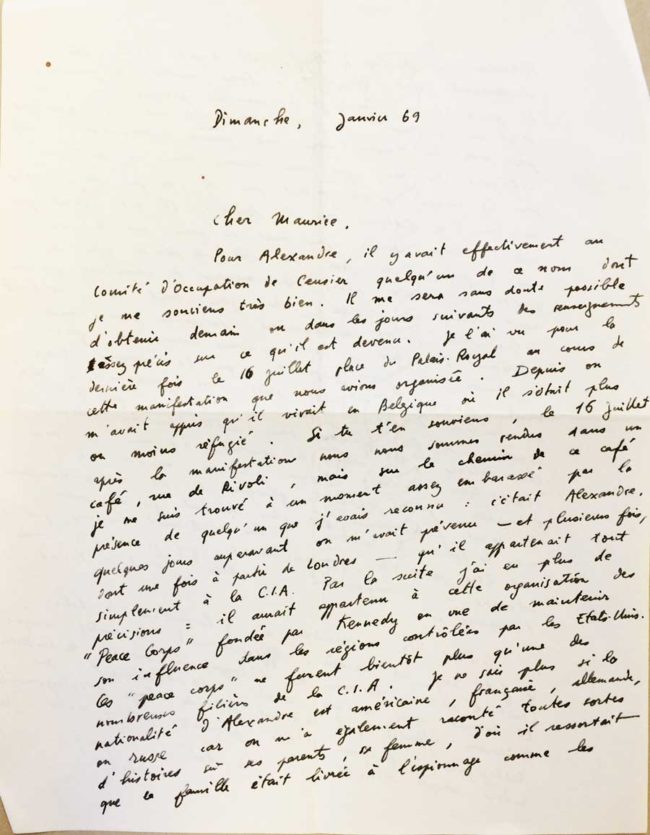 Dimanche, Janvier 69
Cher Maurice.
Pour Alexandre, il y avait effectivement au
Comité d'Occupation de Censier quelqu'un de ce nom dont
je me souviens très bien. Il me sera sans doute possible
d'obtenir demain ou dans les jours suivants des renseignements
assez précis sur ce qu'il est devenu. Je l'ai vu pour la
dernière fois le 16 juillet place du Palais-Royal au cours de
cette manifestation que nous avions organisée. Depuis on
m'avait appris qu'il vivait en Belgique où il s'était plus
ou moins réfugié. Si tu t'en souviens, le 16 juillet
après la manifestation nous nous sommes rendus dans un
café, rue de Rivoli, mais sur le chemin de ce café
je me suis trouvé à un moment assez embarassé par la
présence de quelqu'un que j'avais reconnu : c'était Alexandre.
quelques jours auparavant on m'avait prévenu — et plusieurs fois,
dont une fois à partir de Londres — qu'il appartenait tout
simplement à la C.I.A. Par la suite j'ai eu plus de
précisions : il aurait appartenu à cette organisation des
"Peace Corps" fondée par Kennedy en vue de maintenir
son influence dans les régions contrôlées par les Etats-Unis.
Ces "peace corps" ne furent bientôt plus qu'une des
nombreuses filières de la C.I.A. Je ne sais plus si la
nationalité d'Alexandre est américaine, française, allemande,
ou russe car on m'a également raconté toutes sortes
d'histoires sur ses parents, sa femme, d'où il ressortait
que la famille était livrée à l'espionnage comme les